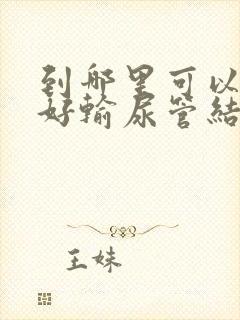 到哪里可以
好输尿管结
王妹